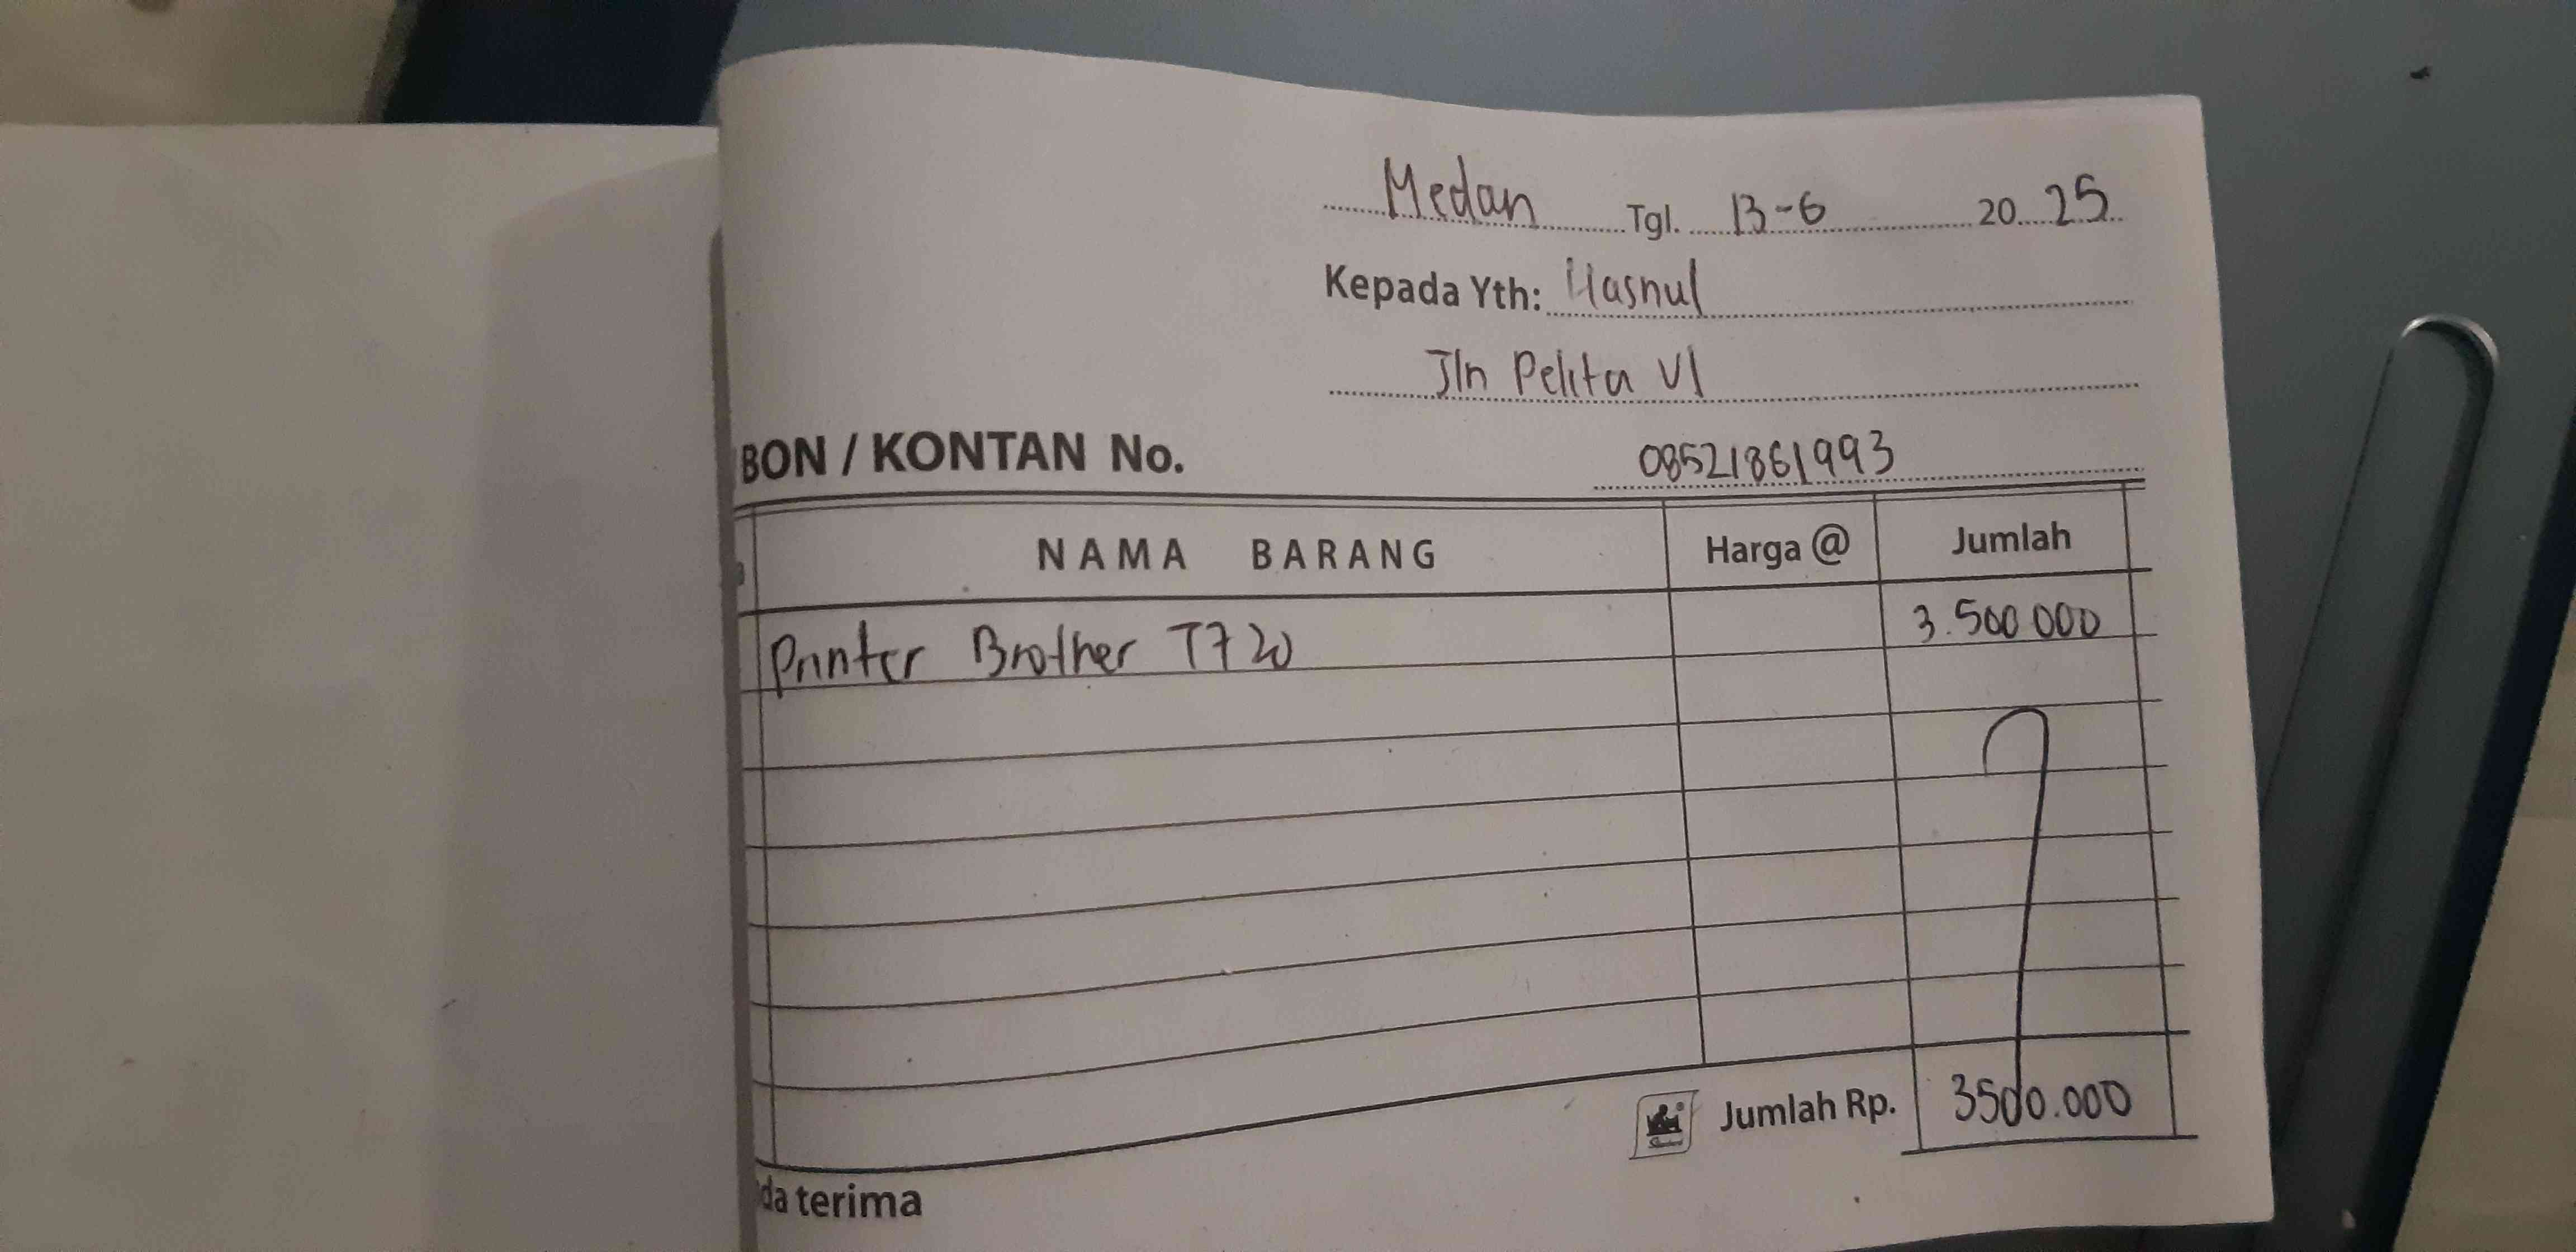 Medan Tgl. 13-6 20 25
Kepada Yth: Hasnul
Jln Pelita VI
BON / KONTAN No. 08521861993
NAMA BARANG Harga @ Jumlah
Printer Brother T720 3.500.000
Jumlah Rp. 3500.000
da terima